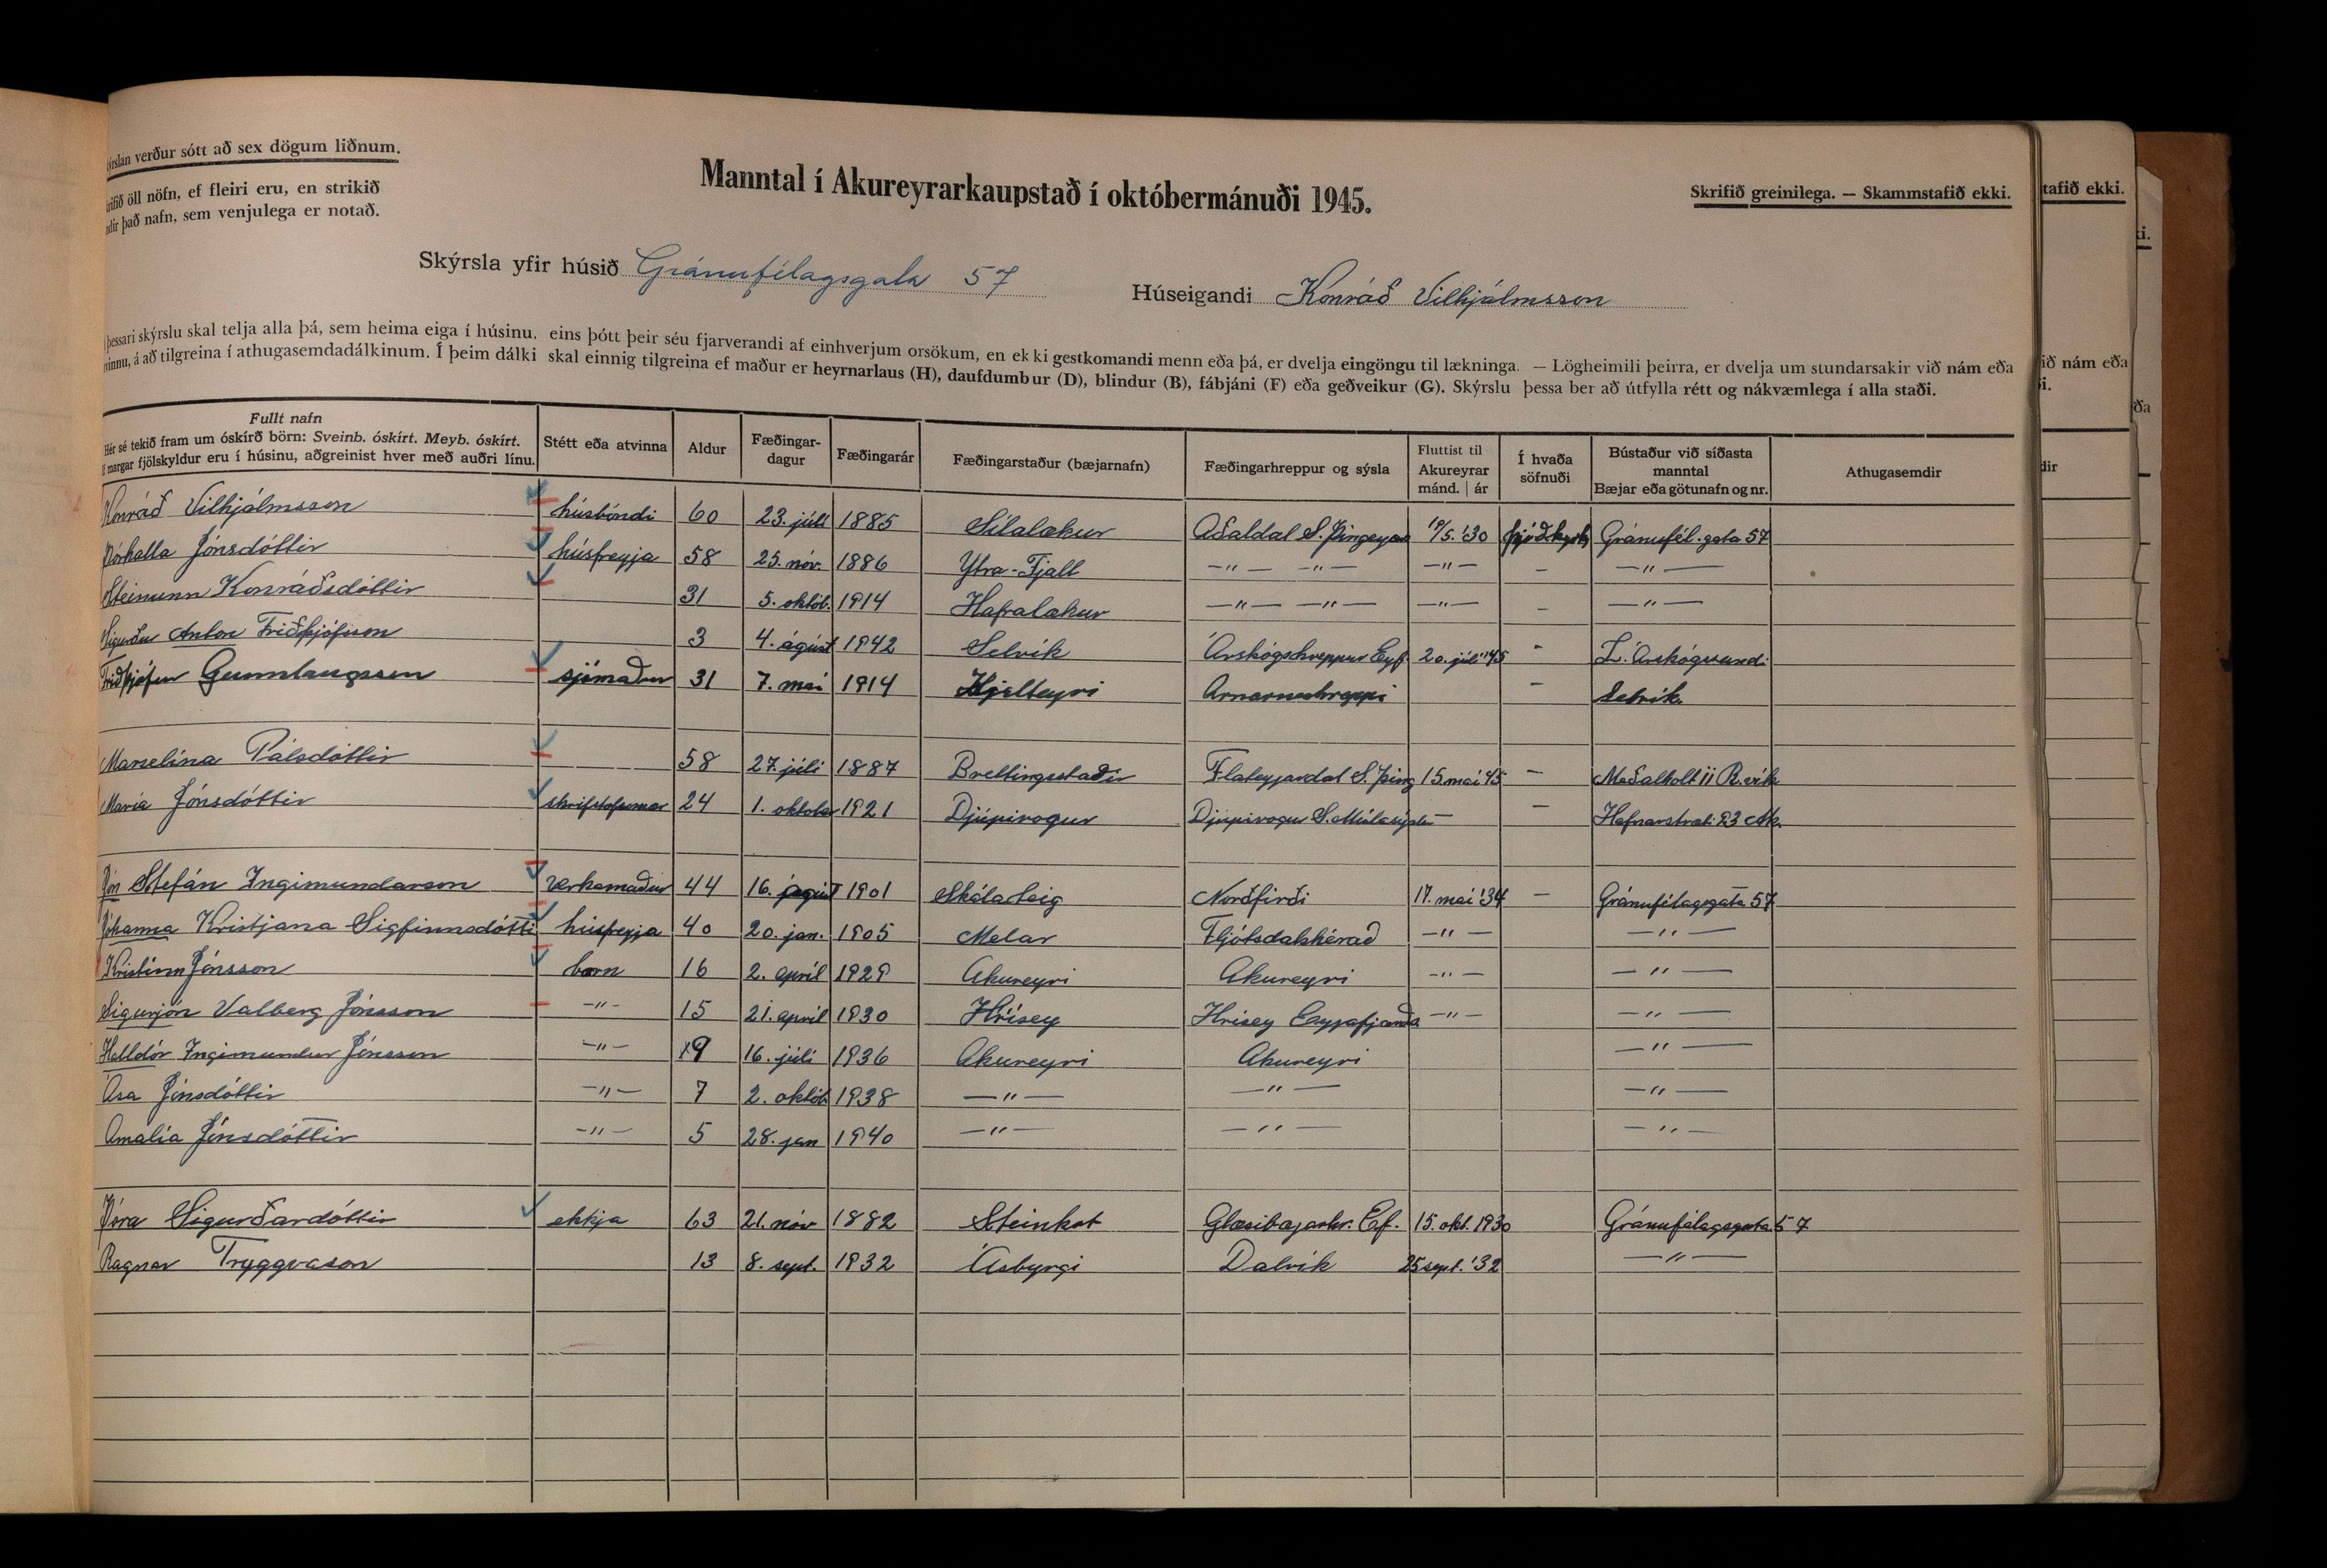 skýrslan verður sótt að sex dögum liðnum.
öll nöfn, ef fleiri eru, en strikið
það nafn, sem venjulega er notað.
Manntal í Akureyrarkaupstað í októbermánuði 1945.
Skrifið greinilega. — Skammstafið ekki.
Skýrsla yfir húsið Gránufélagsgata 57
Húseigandi Konráð Vilhjálmsson
þessari skýrslu skal telja alla þá, sem heima eiga í húsinu, eins þótt þeir séu fjarverandi af einhverjum orsökum, en ekki gestkomandi menn eða þá, er dvelja eingöngu til lækninga. — Lögheimili þeirra, er dvelja um stundarsakir við nám eða
vinnu, á að tilgreina í athugasemdadálkinum. Í þeim dálki skal einnig tilgreina ef maður er heyrnarlaus (H), daufdumbur (D), blindur (B), fábjáni (F) eða geðveikur (G). Skýrslu þessa ber að útfylla rétt og nákvæmlega í alla staði.
Fullt nafn
Hér sé tekið fram um óskírð börn: Sveinb. óskírt. Meyb. óskírt.
margar fjölskyldur eru í húsinu, aðgreinist hver með auðri línu.
Stétt eða atvinna
Aldur
Fæðingar-
dagur
Fæðingarár
Fæðingarstaður (bæjarnafn)
Fæðingarhreppur og sýsla
Fluttist til
Akureyrar
mánd. | ár
Í hvaða
söfnuði
Bústaður við síðasta
manntal
Bæjar eða götunafn og nr.
Athugasemdir
Konráð Vilhjálmsson húsbóndi 60 23. júlí 1885 Sílalækur Aðaldal S. Þingeyas 19/5. '30 þjóðkirkj Gránufél.gata 57
Þórhalla Jónsdóttir húsfreyja 58 25. nóv. 1886 Ytra-Fjall —"— —"— —"— – —"—
Steinunn Konráðsdóttir 31 5. októb. 1914 Hafralækur —"— —"— —"— – —"—
Sigurður Anton Friðþjófsson 3 4. ágúst 1942 Selvík Árskógshreppur Eyf. 20. júlí '45 – L. Árskógssandi
Friðþjófur Gunnlaugsson sjómaður 31 7. maí 1914 Hjalteyri Arnarneshreppi – Selvík.
Marselína Pálsdóttir 58 27. júlí 1887 Brettingsstaðir Flateyjardal S. Þing 15. maí '45 – Meðalholt 11 R.vík
María Jónsdóttir skrifstofumær 24 1. október 1921 Djúpivogur Djúpivogur S. Múlasýslu – – Hafnarstræti 23 Ak.
Jón Stefán Ingimundarson verkamaður 44 16. ágúst 1901 Skálateig Norðfirði 17. maí '34 – Gránufélagsgata 57
Jóhanna Kristjana Sigfinnsdóttir húsfreyja 40 20. jan. 1905 Melar Fljótsdalshérað —"— —"—
Kristinn Jónsson barn 16 2. apríl 1929 Akureyri Akureyri —"— —"—
Sigurjón Valberg Jónsson —"— 15 21. apríl 1930 Hrísey Hrísey Eyjafjarða —"— —"—
Halldór Ingimundur Jónsson —"— 9 16. júlí 1936 Akureyri Akureyri —"—
Ása Jónsdóttir —"— 7 2. októb. 1938 —"— —"— —"—
Amalía Jónsdóttir —"— 5 28. jan 1940 —"— —"— —"—
Þóra Sigurðardóttir ekkja 63 21. nóv 1882 Steinkot Glæsibæjarhr. Ef. 15. okt. 1930 Gránufélagsgata 57
Ragnar Tryggvason 13 8. sept. 1932 Ásbyrgi Dalvík 25 sept. '32 —"—